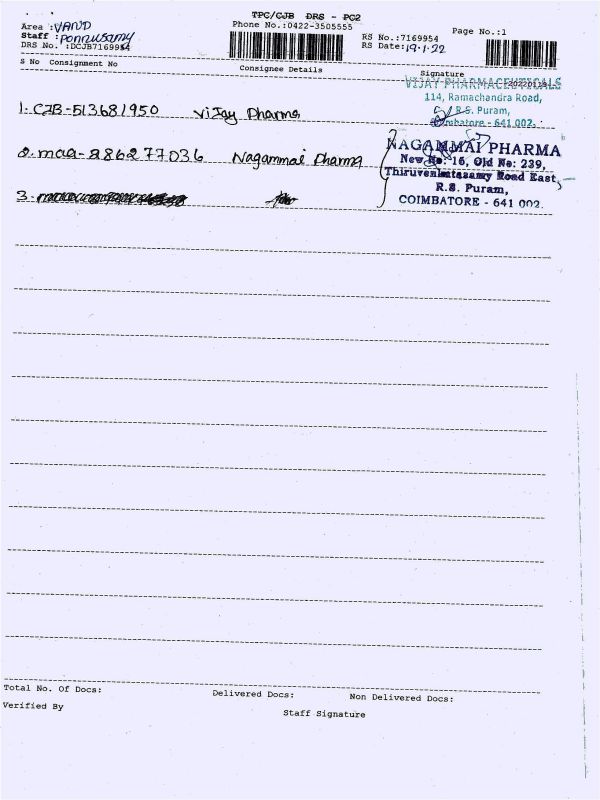 TPC/CJB DRS - PC2
Phone No.:0422-3505555
Area : VAND
Staff : Ponnusamy
DRS No. :DCJB7169954
RS No.:7169954
RS Date: 19.1.22
Page No.:1
S No Consignment No Consignee Details Signature
VIJAY PHARMACEUTICALS
114, Ramachandra Road,
R.S. Puram,
Coimbatore - 641 002.
1. CJB-513681950 Vijay Pharma
NAGAMMAI PHARMA
New No: 16, Old No: 239,
Thiruvenkatasamy Road East,
R.S. Puram,
COIMBATORE - 641 002.
2. maa-286277036 Nagammai Pharma
3.
Total No. Of Docs: Delivered Docs: Non Delivered Docs:
Verified By Staff Signature